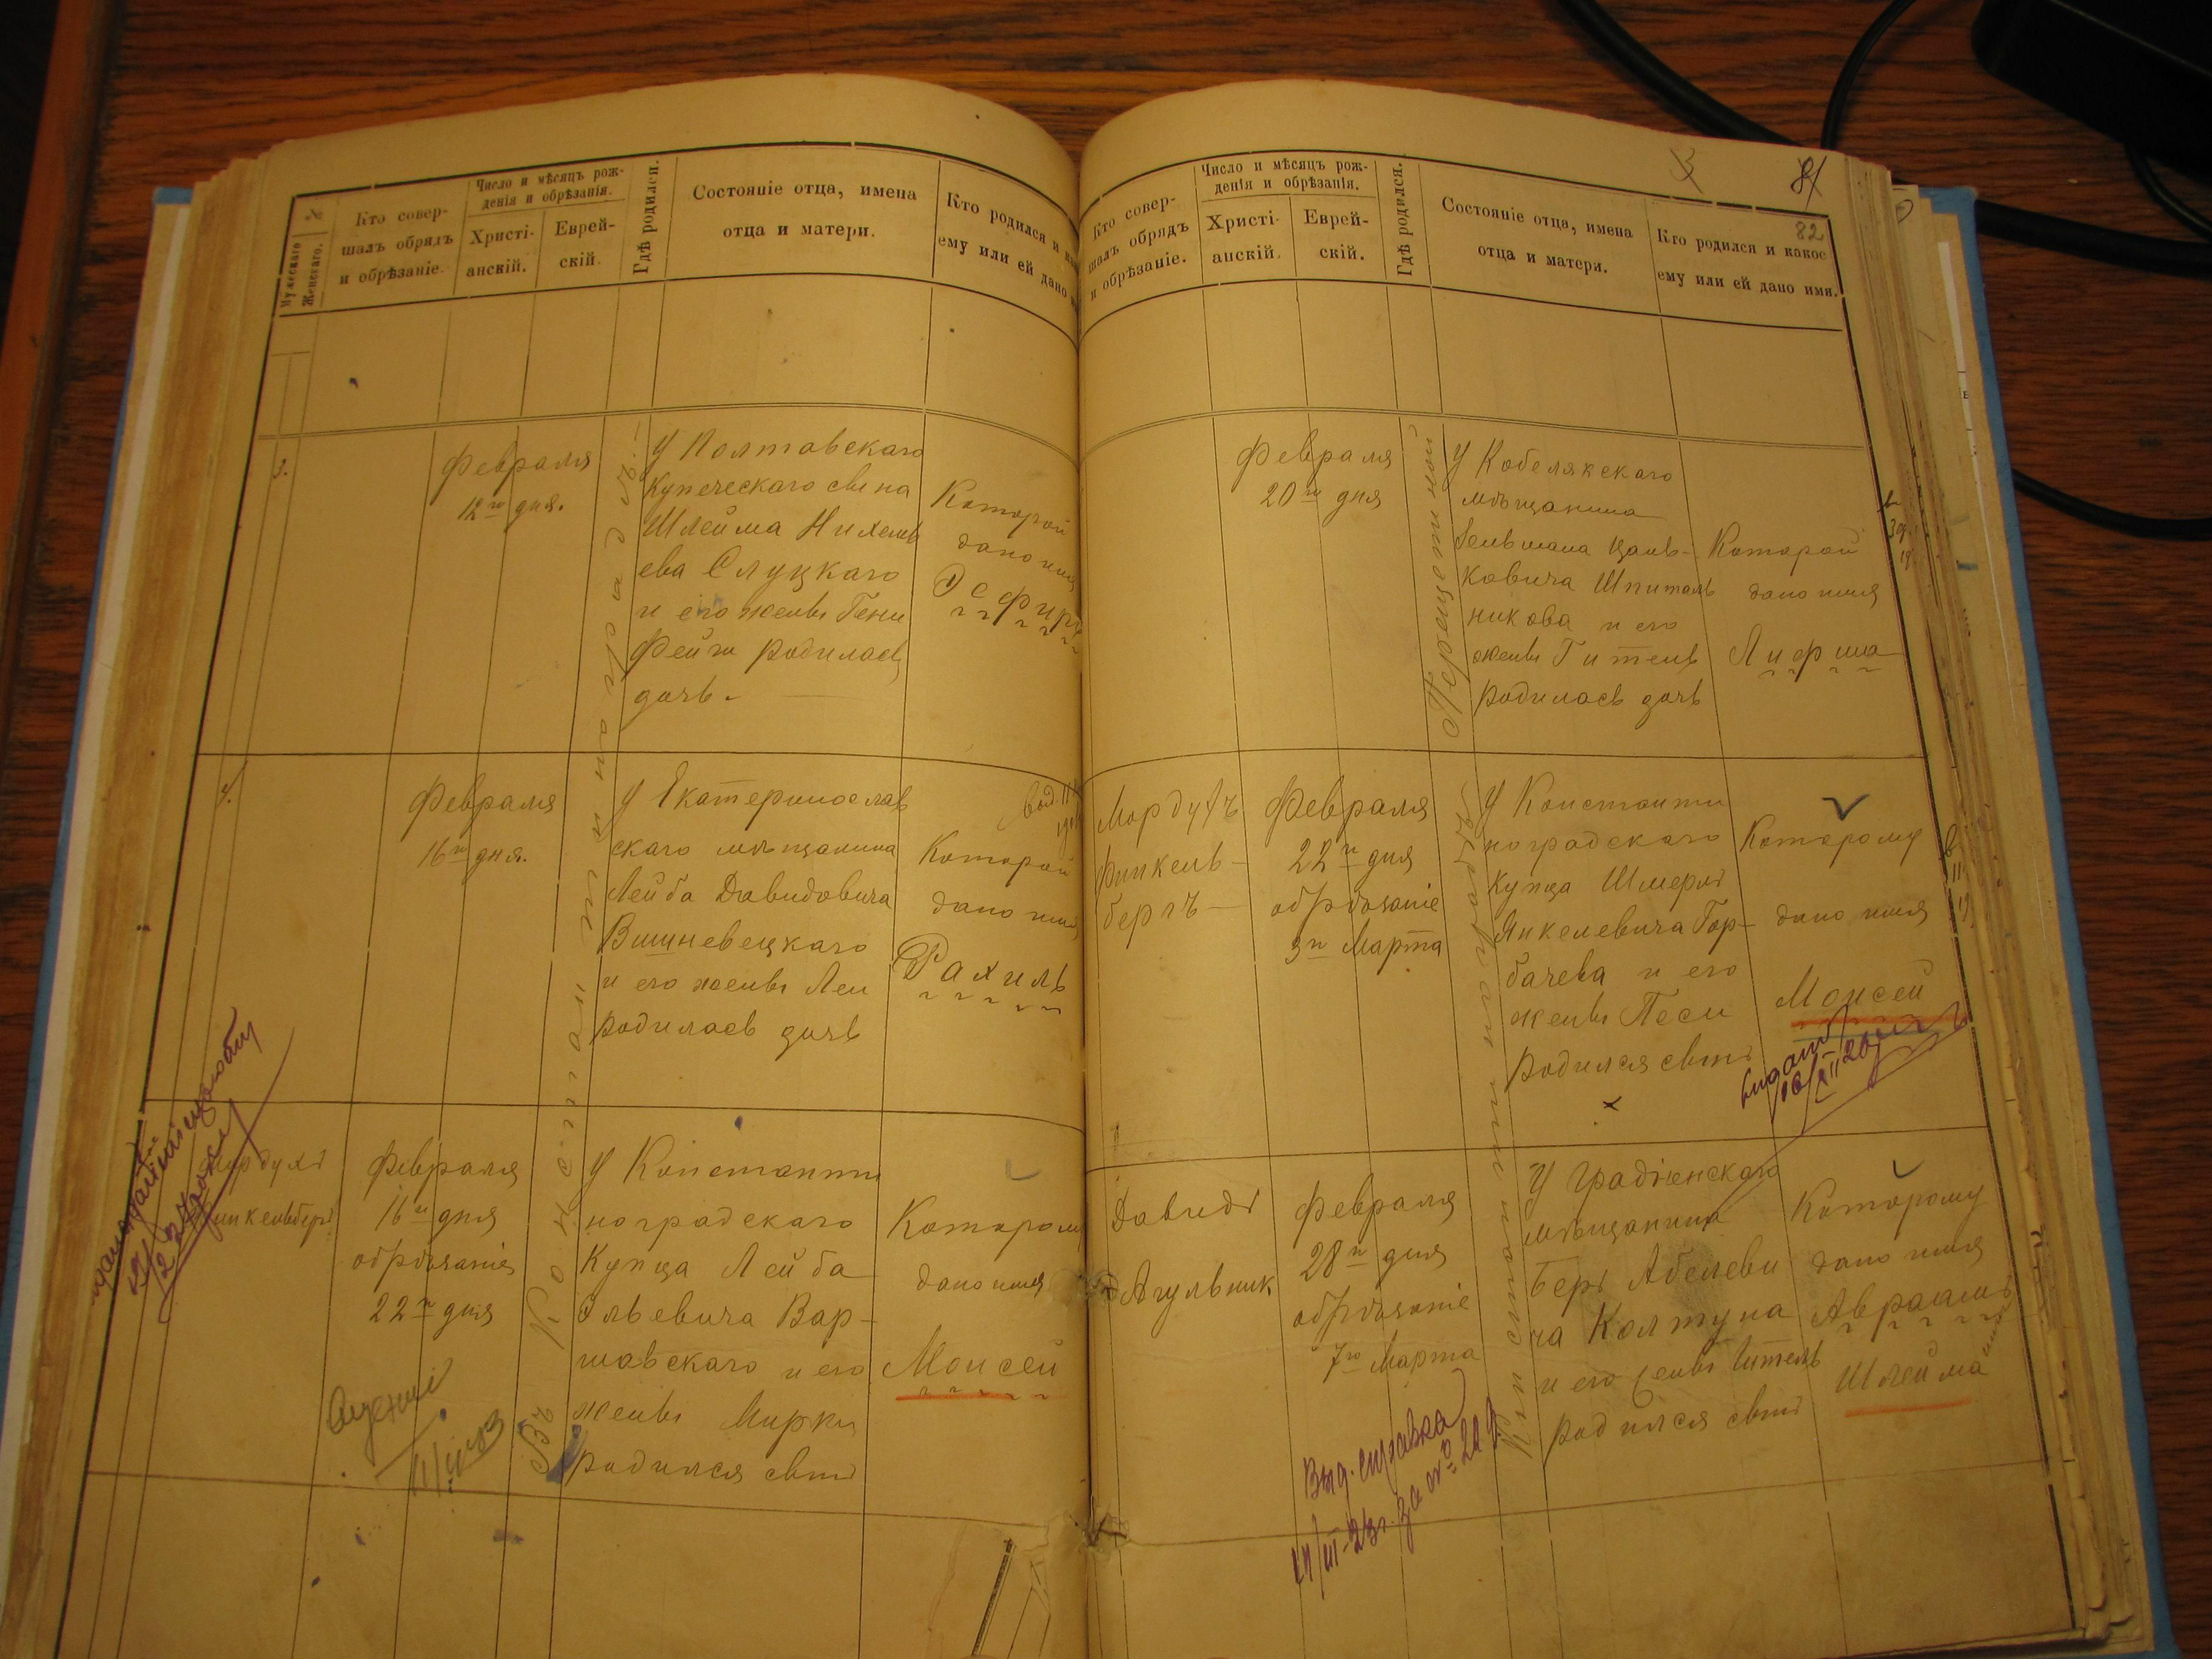 №
Мужескаго
Женскаго.
Кто совер-
шалъ обрядъ
и обрѣзаніе.
Число и мѣсяцъ рож-
денія и обрѣзанія.
Христі-
анскій.
Еврей-
скій.
Гдѣ родился.
Состояніе отца, имена
отца и матери.
Кто родился и
ему или ей дано
3.
Февраля
12го дня.
У Полтавскаго
Купеческаго сына
Шлейма
ева Слуцкаго
и его жены Гени
Фейги родилась
дочь.
Которой
дано имя
4.
Февраля
16го дня.
У Екатеринослав
скаго мѣщанина
Лейба Давидовича
Вишневецкаго
и его жены Леи
родилась дочь
Которой
дано имя
Рахиль
Мордухъ
Финкельбергъ
Февраля
16го дня
обрѣзаніе
22го дня
У Константи
ноградскаго
Купца Лейба
Эльевича Вар-
шавскаго и его
жены Мирки
родился сынъ
Которому
дано имя
Моисей
Въ Константиноградѣ
81
82
Кто совер-
шалъ обрядъ
и обрѣзаніе.
Число и мѣсяцъ рож-
денія и обрѣзанія.
Христі-
анскій.
Еврей-
скій.
Гдѣ родился.
Состояніе отца, имена
отца и матери.
Кто родился и какое
ему или ей дано имя.
Февраля
20го дня
Перещепиной
У Кобелякскаго
мѣщанина
Цаль-
ковича Шпиталь
никова и его
жены Гитель
родилась дочь
Которой
дано имя
Лифша
Мордухъ
Финкель-
бергъ
Февраля
22го дня
обрѣзаніе
3го Марта
У Константи
ноградскаго
Купца Шмерл
Янкелевича Гор-
бачева и его
жены Песи
родился сынъ
Которому
дано имя
Моисей
Давидъ
Ягульник
Февраля
28го дня
обрѣзаніе
7го Марта
У
мѣщанина
Беръ Абелеви
ча Колтуна
и его жены
родился сынъ
Которому
дано имя
Авраамъ
Шлейма
Константиноградѣ
Выд. справка